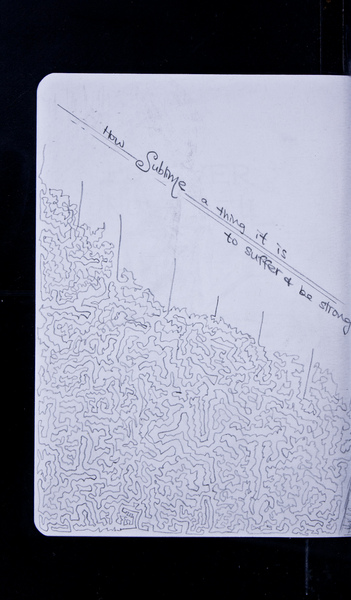 How Sublime a thing it is
to suffer & be strong